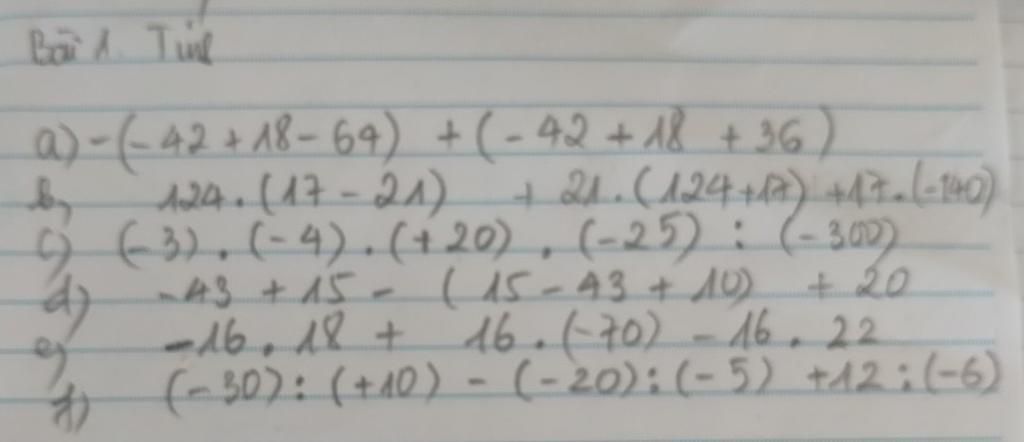 Bài 1. Tính
a) -(-42 + 18 - 64) + (-42 + 18 + 36)
b, 124.(17 - 21) + 21.(124+17) +17.(-140)
c) (-3).(-4).(+20).(-25) : (-300)
d) -43 + 15 - (15 - 43 + 10) + 20
e) -16.18 + 16.(-70) - 16.22
f) (-30):(+10) - (-20):(-5) +12:(-6)